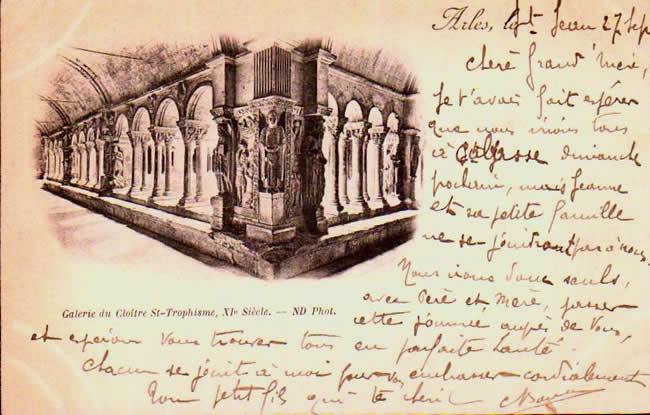 Arles, le St Jean 27 Sep
Chère Grand' Mère,
Je t'avais fait espérer
que nous irions tous
à dimanche
prochain, mais Jeanne
et sa petite famille
ne se joindront pas à nous.
Nous irons donc seuls,
avec Père et Mère, passer
cette journée auprès de Vous,
Galerie du Cloître St-Trophisme, XIe Siècle. — ND Phot.
et espérons Vous trouver tous en parfaite santé.
Chacun se joint à moi pour vous embrasser cordialement
Ton petit fils qui te chérit